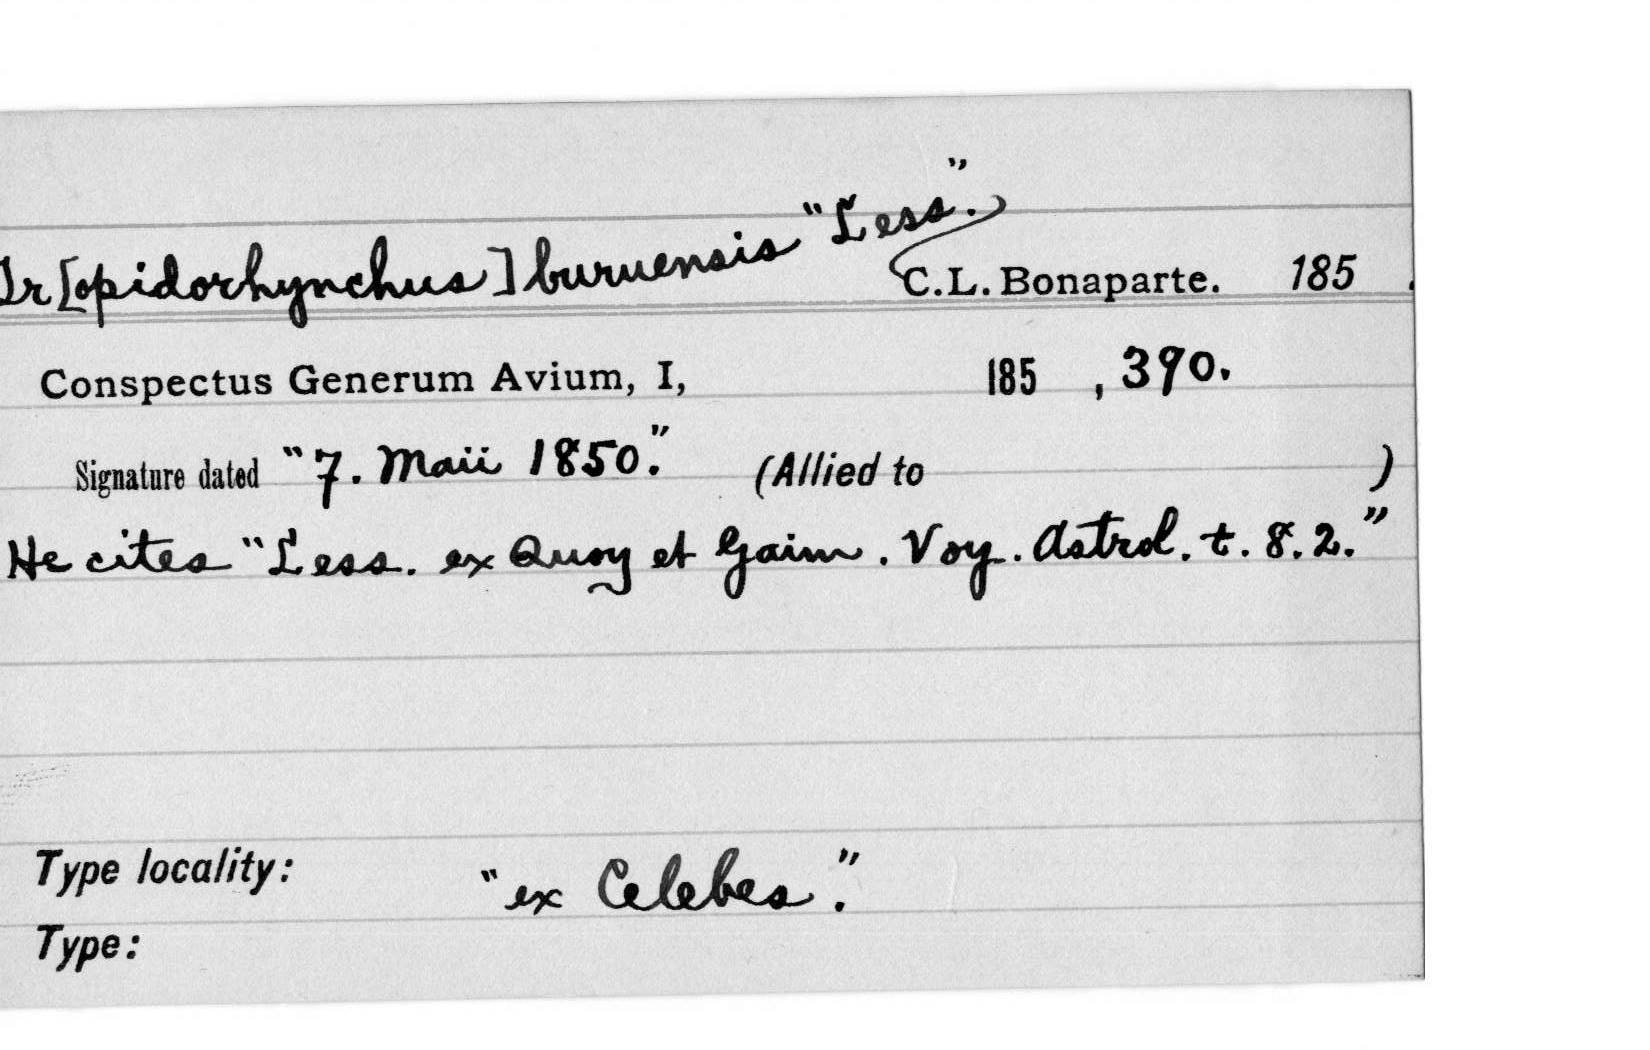 Tr[opidorhynchus] buruensis "Less."
C.L. Bonaparte. 185 .
Conspectus Generum Avium, I, 185 , 390.
Signature dated "7. Maii 1850." (Allied to )
He cites "Less. ex Quoy et Gaim. Voy. Astrol. t. 8. 2."
Type locality: "ex Celebes."
Type: